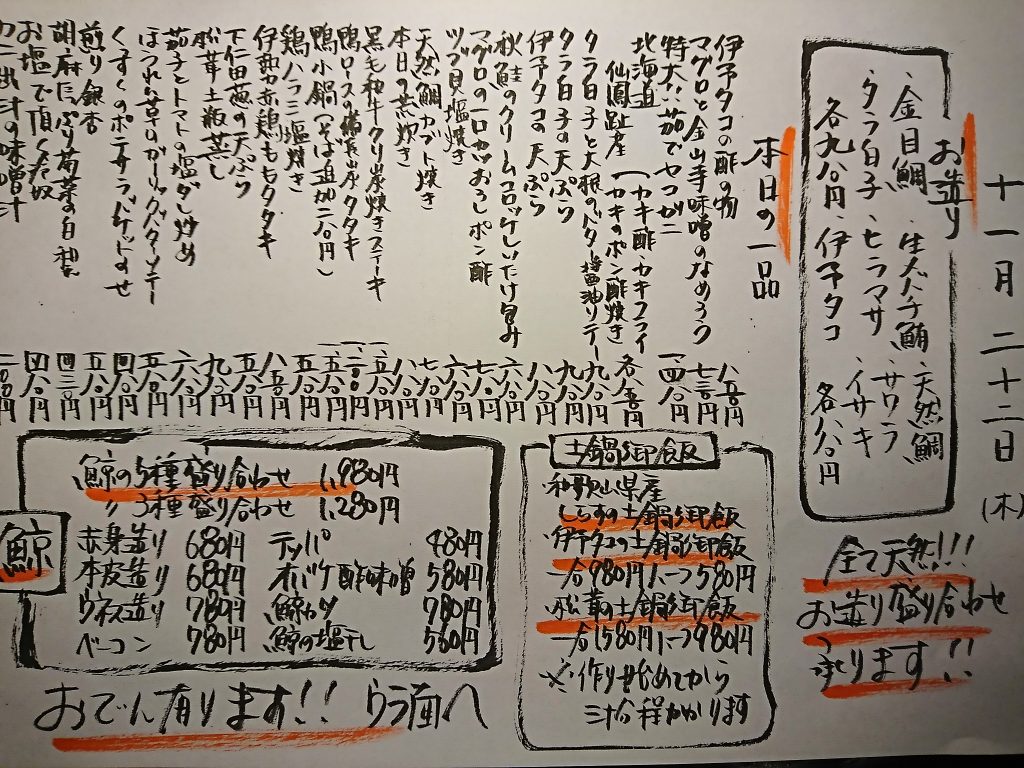 十一月二十二日(木)
お造り
・金目鯛・生バチ鮪・天然鯛
・タラ白子・ヒラマサ・サワラ・イサキ
各九八〇円・伊予タコ 各八八〇円
全て天然!!!
お造り盛り合わせ
承ります!!
本日の一品
伊予タコの酢の物 八五〇円
マグロと金山寺味噌のなめろう 七三〇円
特大ゆで
北海道仙鳳趾産(カキ酢・カキフライ
カキのポン酢焼き
タラ白子と大根のバター醤油ソテー 九八〇円
タラ白子の天ぷら 九八〇円
伊予タコの天ぷら 八八〇円
秋鮭のクリームコロッケしいたけ包み
マグロの一口カツおろしポン酢
ツブ貝塩焼き
天然鯛カブト焼き
本日の煮炊き
黒毛和牛クリ炭焼きステーキ
鴨ロースの備長炭タタキ
鴨小鍋(そば追加二八〇円)
鶏ハラミ塩焼き
伊勢赤鶏ももタタキ
下仁田葱の天ぷら
松茸土瓶蒸し
茄子とトマトの塩ダレ炒め
ほうれん草のガーリックバターソテー
くんせいのポテサラバケットのせ
煎り銀杏
胡麻たっぷり菊菜の白和え
お塩で頂く冷奴
カニ出汁の味噌汁
土鍋御飯
・和歌山県産
しらすの土鍋御飯
・伊予タコの土鍋御飯
一合980円 二つ580円
・松茸の土鍋御飯
一合1580円 二つ980円
※作り始めてから
三十分程かかります
鯨
鯨の5種盛り合わせ 1,980円
〃3種盛り合わせ 1,280円
赤身造り 680円 テッパ 480円
本皮造り 680円 オバケ酢味噌 580円
ウネス造り 780円 鯨カツ 780円
ベーコン 780円 鯨の塩干し 560円
おでん有ります!! ウラ面へ